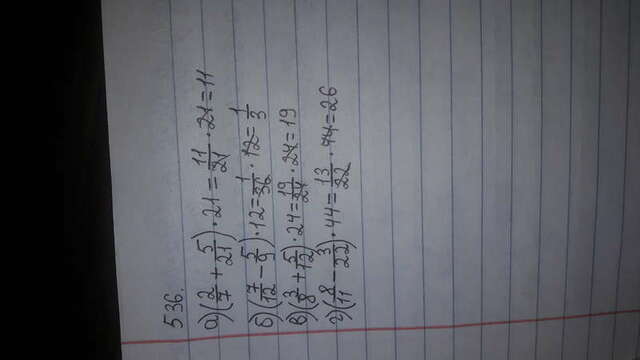 536.
а) (2/7 + 5/21) · 21 = 11/21 · 21 = 11
б) (7/12 - 5/9) · 12 = 1/36 · 12 = 1/3
в) (3/8 + 5/12) · 24 = 19/24 · 24 = 19
г) (8/11 - 3/22) · 44 = 13/22 · 44 = 26